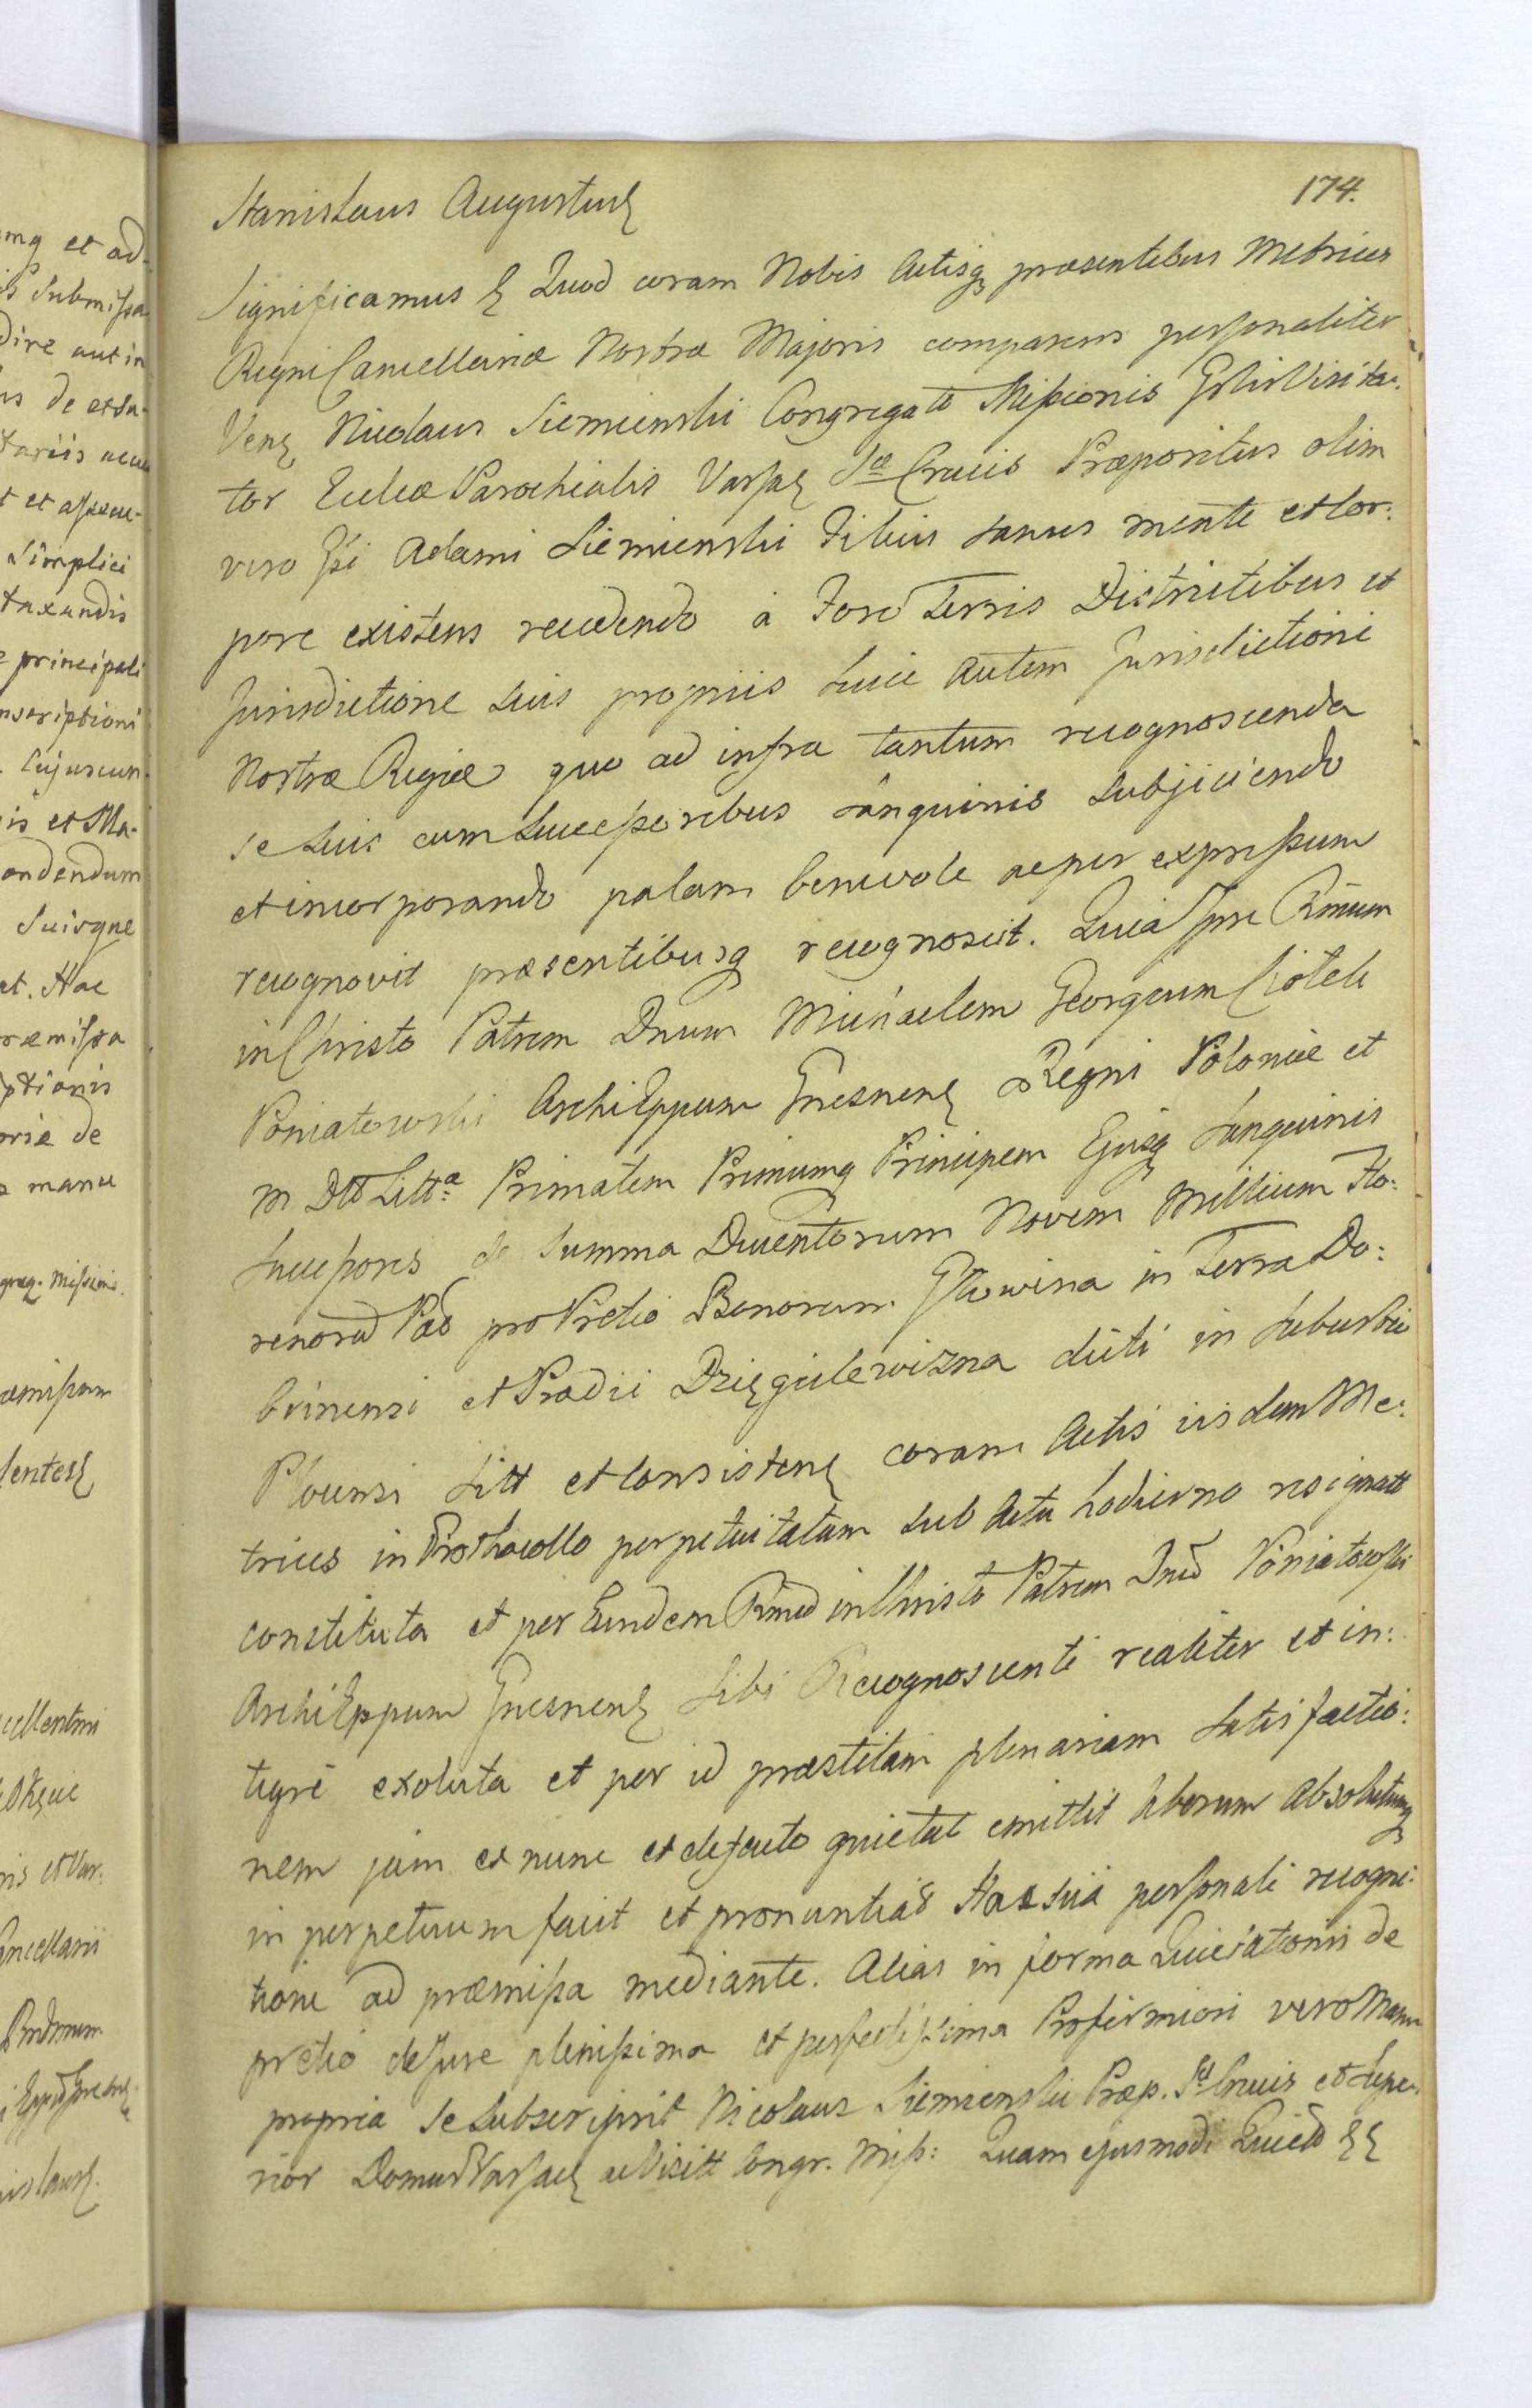 174.
Stanislaus Augustus
Significamus & Quod coram Nobis Actisq præsentibus Metrices
Regni Cancellariæ Nostræ Majoris comparens personaliter
Ven Nicolaus Siemienski Congregatt Missionis Visita:
tor Eccleæ Parochialis Varsa Stæ Crucis Præpositus olim
vero Adami Siemienski Filius sanus mente et Cor:
pore existens recedendo à Foro Terris Districtibus et
Jurisdictione suis propriis Suis autem Jurisdictioni
Nostræ Regiæ quo ad infra tantum recognoscenda
se suis cum Successoribus Sanguinis subjiciendo
et incorporando palam benevole ac per expressum
recognovit præsentibusq recognoscit. Quia Ipse Rmum
in Christo Patrem Dnum Michaelem Georgium Ciołek
Poniatowski ArchiEppum Gnesnen Regni Poloniæ et
M D Litt: Primatem Primumq Principem Ejusq Sanguinis
Successores de Summa Ducentorum Novem Millium Flo:
renorum Pol pro Pretio Bonorum Głowina in Terra Do:
brinensi et Prædii Dzięgielewizna dicti in Suburbio
Plocensi Sitt et Consisten coram Actis iisdem Me:
trices in Prothocollo perpetuitatum sub Actu hodierno resignatt
constituta et per Eundem Rmum in Christo Patrem Dnum Poniatowski
ArchiEppum Gnesnen sibi Recognoscenti realiter et in:
tegre exoluta et per id præstitam plenariam Satisfactio:
nem jam ex nunc et de facto quietat emittit liberum absolutumq
in perpetuum facit et pronuntiat Hac sua personali recogni:
tione ad præmissa mediante. Alias in forma Quietationis de
pretio de Jure plenissima et perfectissima Pro firmiori vero Manu
propria se subscripsit Nicolaus Siemienski Præp. St Crucis et Supe:
rior Domus Varsav ac Visitt Congr. Miss: Quam ejusmodi Quiett &&